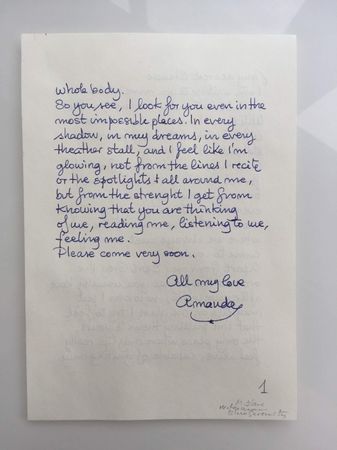 whole body.
So you see, I look for you even in the
most impossible places. In every
shadow, in my dreams, in every
theather stall, and I feel like I'm
glowing, not from the lines I recite
or the spotlights all around me,
but from the strenght I get from
knowing that you are thinking
of me, reading me, listening to me,
feeling me.
Please come very soon.
All my love
Amanda
1